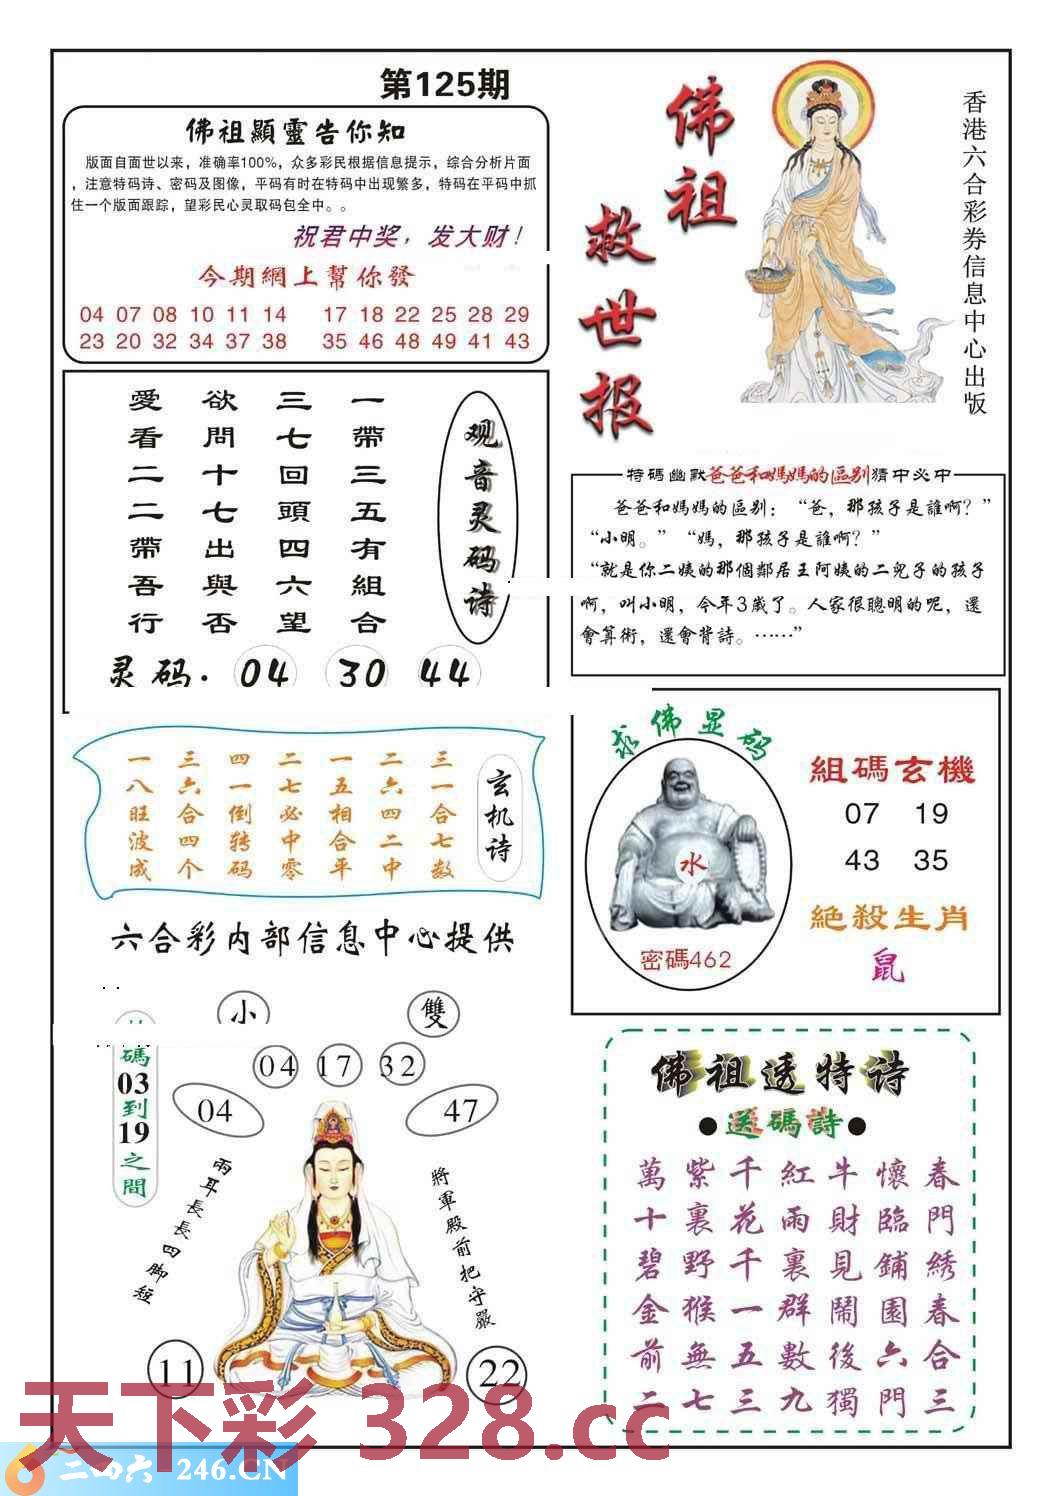 第125期
佛祖顯靈告你知
版面自面世以来，准确率100%，众多彩民根据信息提示，综合分析片面
，注意特码诗、密码及图像，平码有时在特码中出现繁多，特码在平码中抓
住一个版面跟踪，望彩民心灵取码包全中。。
祝君中奖，发大财！
今期網上幫你發
04 07 08 10 11 14 17 18 22 25 28 29
23 20 32 34 37 38 35 46 48 49 41 43
佛祖
救世报
香港六合彩券信息中心出版
观音灵码诗
一帶三五有組合
三七回頭四六望
欲問十七出與否
愛看二二帶吾行
灵码.04 30 44
特碼幽默爸爸和媽媽的區别猜中必中
爸爸和媽媽的區别：“爸，那孩子是誰啊？”
“小明。”“媽，那孩子是誰啊？”
“就是你二姨的那個鄰居王阿姨的二兒子的孩子
啊，叫小明，今年3歲了。人家很聰明的呢，還
會算術，還會背詩。……”
玄机诗
三一合七数
二六四二中
一五相合平
二七必中零
四一倒转码
三六合四个
一八旺波成
求佛显码
水
密碼462
組碼玄機
07 19
43 35
絕殺生肖
鼠
六合彩内部信息中心提供
小
雙
04 17 32
04
47
碼03到19之間
兩耳長長四脚短
將軍殿前把守嚴
11
22
佛祖透特诗
●送碼詩●
春門綉春合三
懷臨鋪園六門
牛財見鬧後獨
紅雨裏群數九
千花千一五三
紫裏野猴無七
萬十碧金前二
天下彩 328.cc
二四六 246.CN